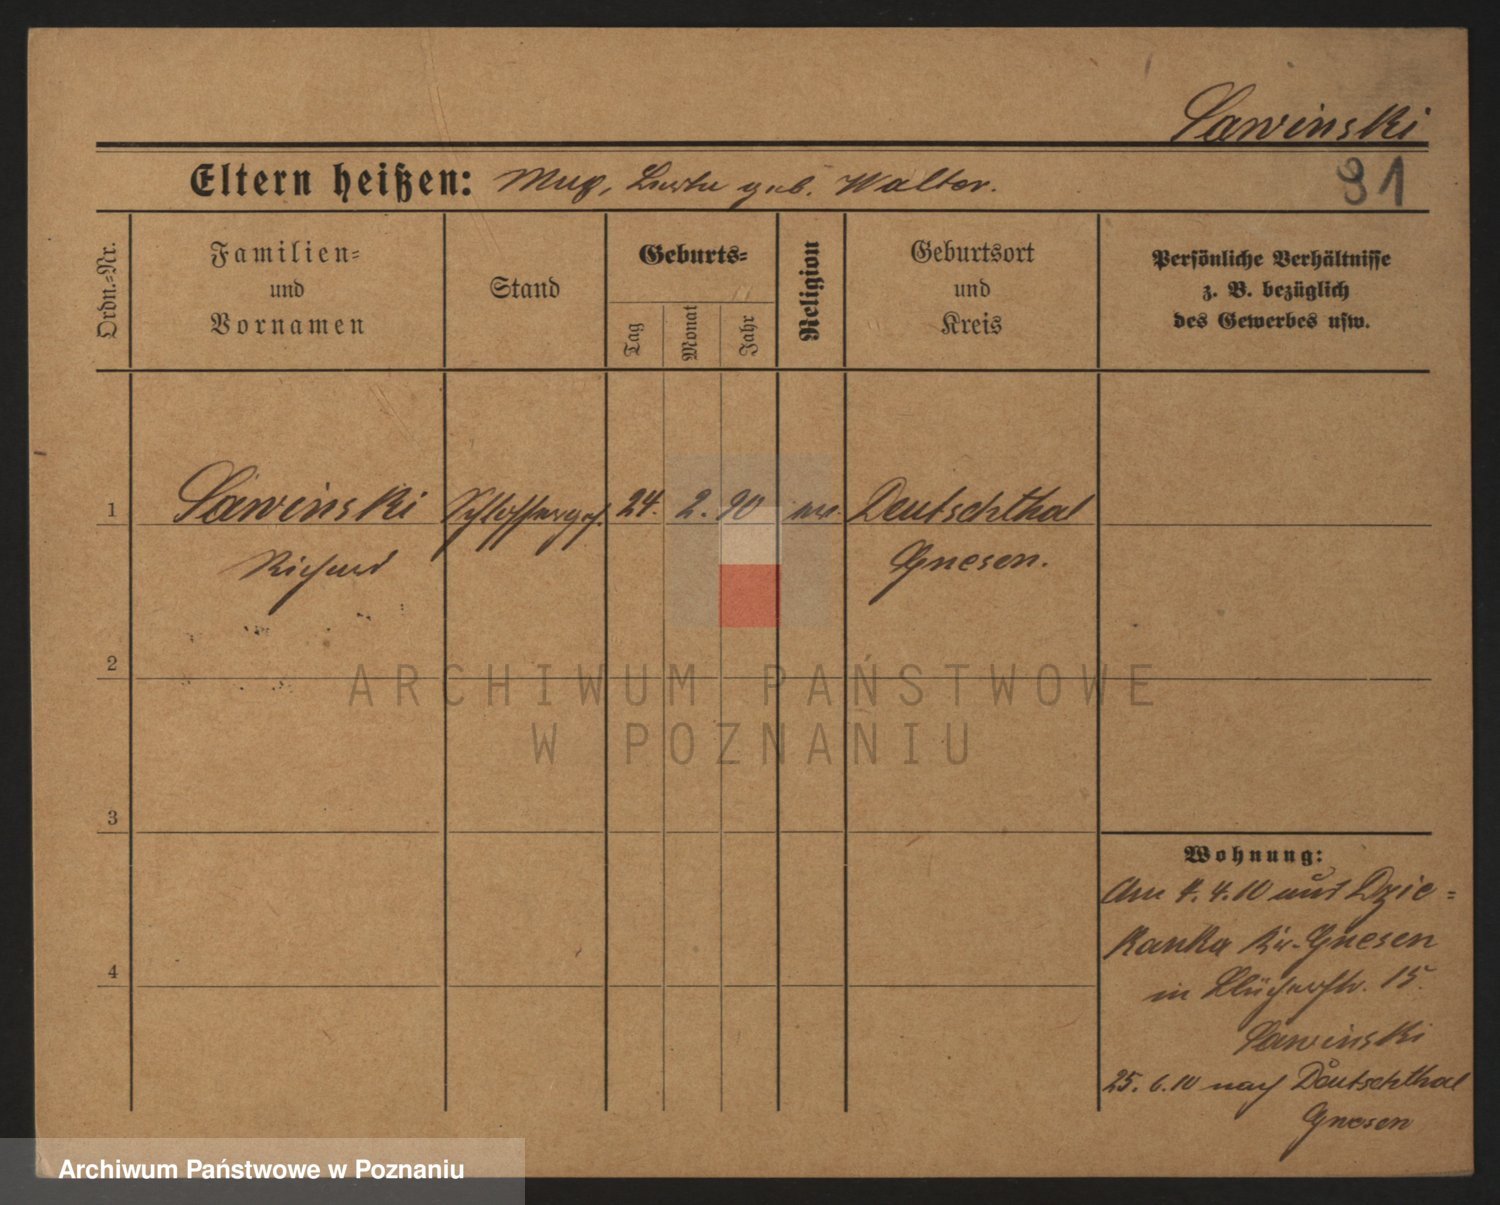 Sawinski
Eltern heißen: Max, Berta geb. Walter.
91
Ordn.-Nr.
Familien-
und
Vornamen
Stand
Geburts-
Tag
Monat
Jahr
Religion
Geburtsort
und
Kreis
Persönliche Verhältnisse
z. B. bezüglich
des Gewerbes usw.
1 Sawinski Schlosserges. 24. 2. 90 ev. Deutschthal
Richard Gnesen.
2
3
4
Wohnung:
Am 4.4.10 aus Dzie=
kanka Kr. Gnesen
in Blücherstr. 15.
Sawinski
25.6.10 nach Deutschthal
Gnesen
ARCHIWUM PAŃSTWOWE
W POZNANIU
Archiwum Państwowe w Poznaniu